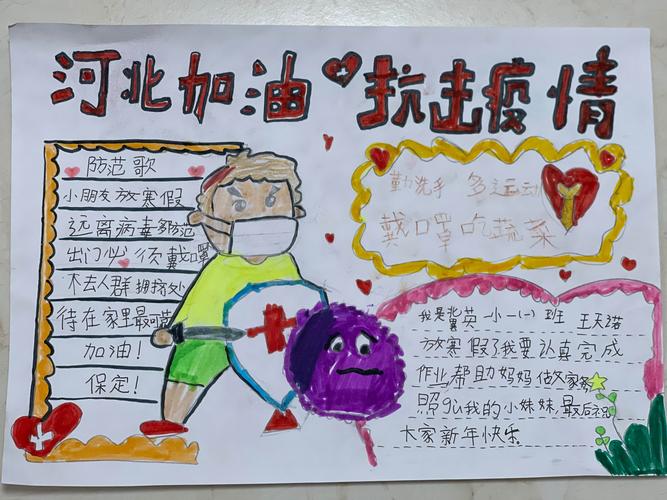 河北加油 抗击疫情
防范歌
小朋友放寒假
远离病毒多防范
出门必须戴口罩
不去人群拥挤处
待在家里最可靠
加油！
保定！
勤洗手 多运动
戴口罩吃蔬菜
我是冀英一小一(一)班 王天诺
放寒假了我要认真完成
作业帮助妈妈做家务
照顾我的小妹妹,最后祝
大家新年快乐